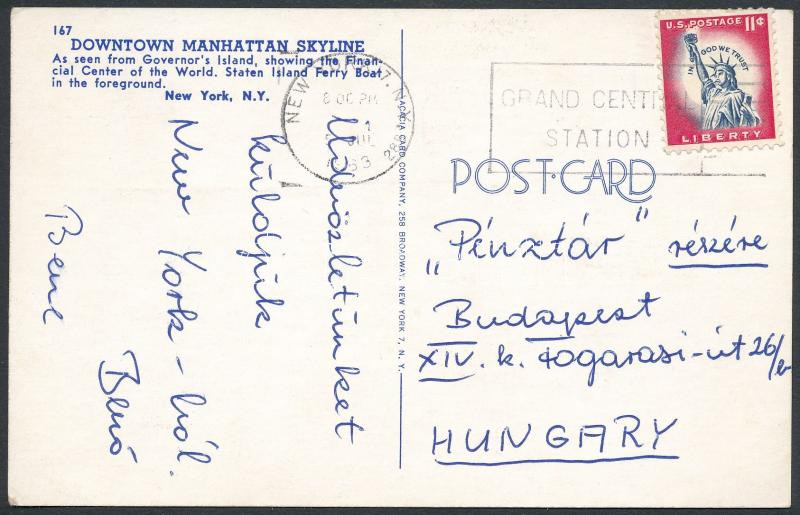 167
DOWNTOWN MANHATTAN SKYLINE
As seen from Governor's Island, showing the Finan-
cial Center of the World. Staten Island Ferry Boat
in the foreground.
New York, N.Y.
Üdvözletünket
küldjük
New York-ból.
Benő
Bene
ACACIA CARD COMPANY, 258 BROADWAY, NEW YORK 7, N. Y.
NEW N.Y.
8:00 PM
1
1963
GRAND CENTRAL
STATION
U.S. POSTAGE 11¢
IN GOD WE TRUST
LIBERTY
POST-CARD
„Pénztár" részére
Budapest
XIV. k. Fogarasi-út 26/b
HUNGARY